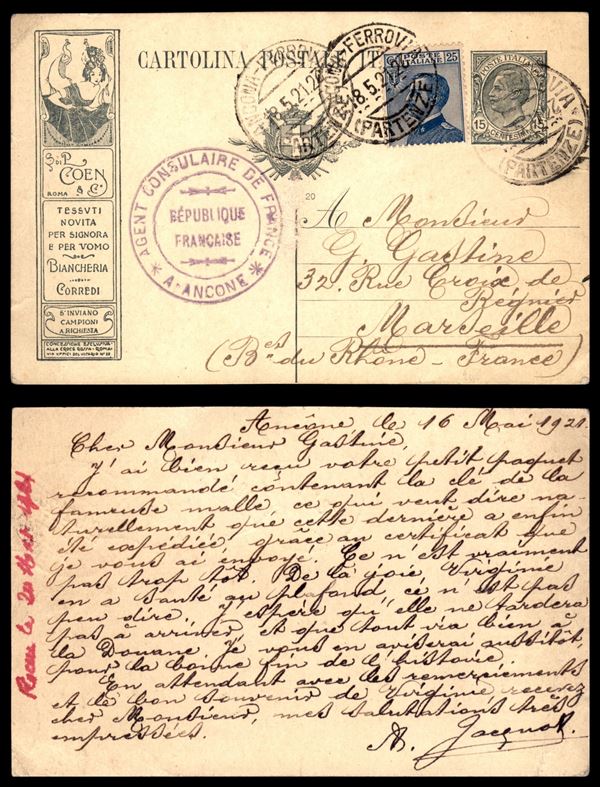 CARTOLINA POSTALE IT
ANCONA-FERROVIA
18.5.21.2
(PARTENZE)
POSTE ITALIANE 25
POSTE ITALIANE
15 CENTESIMI 15
S.di P. COEN & C.
ROMA
TESSVTI
NOVITA
PER SIGNORA
E PER VOMO
BIANCHERIA
CORREDI
S'INVIANO
CAMPIONI
A RICHIESTA
CONCESSIONE ESCLUSIVA
ALLA CROCE ROSSA - ROMA
VIA UFFICI DEL VICARIO Nº 22
AGENT CONSULAIRE DE FRANCE
RÉPUBLIQUE
FRANÇAISE
* A-ANCONE *
20
A Monsieur
G. Gastine
32, Rue Croix de
Régnier
Marseille
(Bes du Rhône - France)
Ancône le 16 Mai 1921.
Cher Monsieur Gastine,
J'ai bien reçu votre petit paquet
recommandé contenant la clé de la
fameuse malle ce qui veut dire na-
turellement que cette dernière a enfin
été expédiée grâce au certificat que
je vous ai envoyé. Ce n'est vraiment
pas trop tôt. De la joie, Virginie
en a sauté au plafond, ce n'est pas
peu dire. J'espère qu'elle ne tardera
pas à arriver, et que tout via bien à
la Douane. Je vous en aviserai aussitôt,
pour la bonne fin de l'histoire.
En attendant avec les remerciements
et le bon souvenir de Virginie recevez
cher Monsieur, mes salutations très
empressées.
A. Jacquot
Reçu le 20